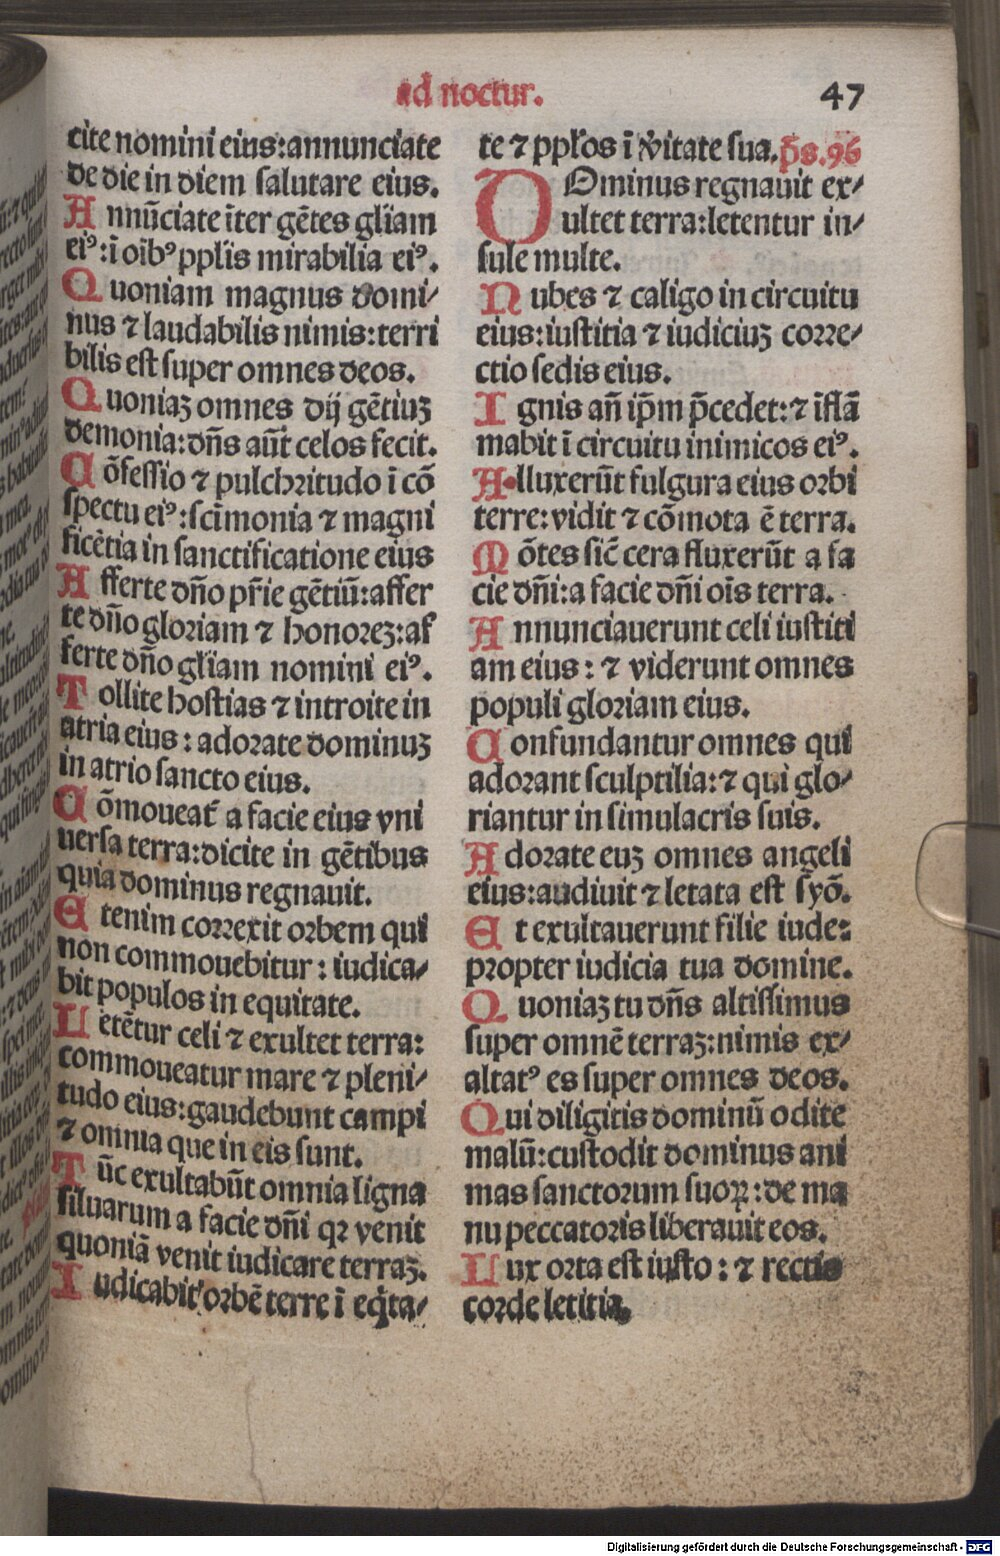 ad noctur.
47
cite nomini eius:annunciate
de die in diem salutare eius.
A nnũciate ĩter gẽtes gl̃iam
eiꝰ:ĩ oĩbꝰ ppl̃is mirabilia eiꝰ.
Q uoniam magnus domi/
nus ⁊ laudabilis nimis:terri
bilis est super omnes deos.
Q uoniaꝫ omnes dij gẽtiuꝫ
demonia:dñs aũt celos fecit.
C õfessio ⁊ pulchritudo ĩ cõ
spectu eiꝰ:scĩmonia ⁊ magni
ficẽtia in sanctificatione eius
A fferte dño pr̃ie gẽtiũ:affer
te dño gloriam ⁊ honoreꝫ:af
ferte dño gl̃iam nomini eiꝰ.
T ollite hostias ⁊ introite in
atria eius: adorate dominuꝫ
in atrio sancto eius.
C õmoueat̃ a facie eius vni
uersa terra:dicite in gẽtibus
quia dominus regnauit.
E tenim correxit orbem qui
non commouebitur: iudica/
bit populos in equitate.
L etẽtur celi ⁊ exultet terra:
commoueatur mare ⁊ pleni/
tudo eius:gaudebunt campi
⁊ omnia que in eis sunt.
T ũc exultabũt omnia ligna
siluarum a facie dñi qꝛ venit
quoniã venit iudicare terraꝫ.
I udicabit orbẽ terre ĩ eq̃ta/
te ⁊ ppl̃os ĩ ṽitate sua. p̃s.96
D Ominus regnauit ex/
ultet terra:letentur in/
sule multe.
N ubes ⁊ caligo in circuitu
eius:iustitia ⁊ iudiciuꝫ corre/
ctio sedis eius.
I gnis añ ip̃m p̃cedet:⁊ ĩflã
mabit ĩ circuitu inimicos eiꝰ.
A lluxerũt fulgura eius orbi
terre:vidit ⁊ cõmota ẽ terra.
M õtes sic̃ cera fluxerũt a fa
cie dñi:a facie dñi oĩs terra.
A nnunciauerunt celi iustiti
am eius: ⁊ viderunt omnes
populi gloriam eius.
C onfundantur omnes qui
adorant sculptilia:⁊ qui glo/
riantur in simulacris suis.
A dorate euꝫ omnes angeli
eius:audiuit ⁊ letata est syõ.
E t exultauerunt filie iude:
propter iudicia tua domine.
Q uoniaꝫ tu dñs altissimus
super omnẽ terraꝫ:nimis ex/
altatꝰ es super omnes deos.
Q ui diligitis dominũ odite
malũ:custodit dominus ani
mas sanctorum suoꝝ:de ma
nu peccatoris liberauit eos.
L ux orta est iusto: ⁊ rectis
corde letitia.
Digitalisierung gefördert durch die Deutsche Forschungsgemeinschaft - DFG